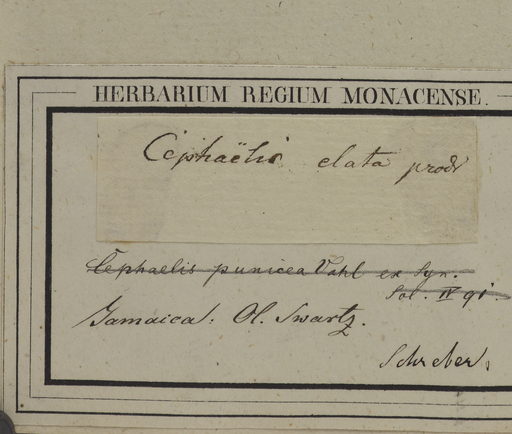 HERBARIUM REGIUM MONACENSE.
Cephaëlis elata prodr
Cephaelis punicea Vahl ex Syn.
Sol. IV 91.
Jamaica. Ol. Swartz.
Schreber.